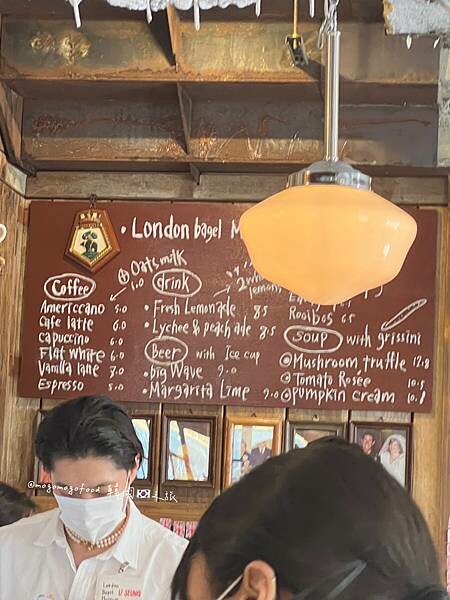 • London bagel M
⊕ Oats milk
1.0
Coffee
Americcano 5.0
Cafe latte 6.0
Cappuccino 6.0
Flat white 6.0
Vanilla latte 7.0
Espresso 5.0
drink
• Fresh Lemonade 8.5
• Lychee & peach ade 8.5
Beer with Ice cup
• big Wave 9.0
• Margarita Lime 9.0
lemon
Rooibos 6.5
Soup with grissini
Mushroom truffle 12.8
Tomato Rosée 10.5
pumpkin cream
@mogomogofood 韓國🇰🇷之旅
London
Bagel
Museum
U SEUNG